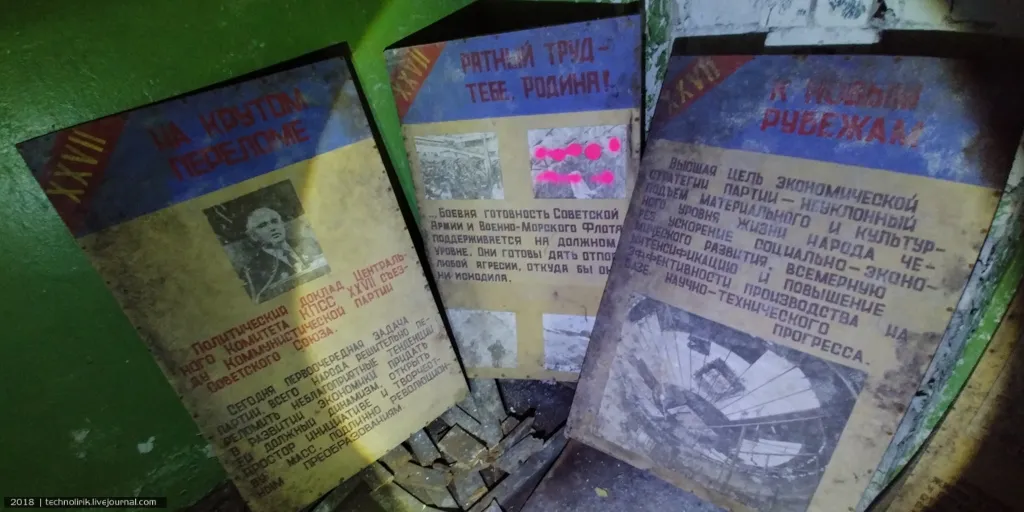 XXVII
НА КРУТОМ
ПЕРЕЛОМЕ
Политический доклад Централь-
ного комитета КПСС XXVII съез-
ду Коммунистической партии
Советского Союза.
Сегодня первоочередная задача
партии, всего народа решительно пе-
реломить неблагоприятные тенденции
в развитии экономики, придать
ей должный динамизм, открыть
простор инициативе и творчест-
ву масс, подлинно революцион-
ным преобразованиям
XXVII
РАТНЫЙ ТРУД-
ТЕБЕ, РОДИНА!
„Боевая готовность Советской
Армии и Военно-Морского Флота
поддерживается на должном
уровне. Они готовы дать отпор
любой агресии, откуда бы он
ни исходила.
XXVII
К НОВЫМ
РУБЕЖАМ!
Высшая цель экономической
стратегии партии — неуклонный
подъем материального и культур-
ного уровня жизни народа че-
рез ускорение социально-эконо-
мического развития, всемерную
интенсификацию и повышение
эффективности производства на
базе научно-технического
прогресса.
2018 | technolirik.livejournal.com